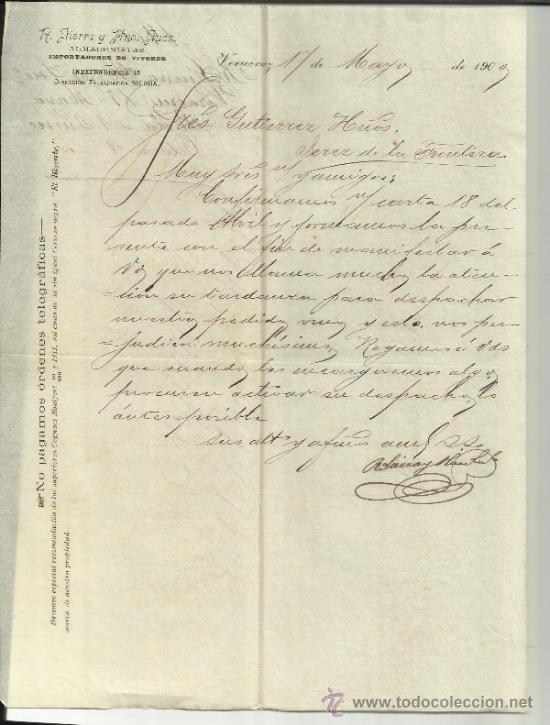 R. Sierra y Hno. Sucs.
ALMACENISTAS
IMPORTADORES DE VIVERES
INDEPENDENCIA
DIRECCION TELEGRAFICA SIERRA.
Veracruz 17 de Mayo de 190
Sres Gutierrez Hños.
Jerez de la Frontera
Muy Sres y amigos:
Confirmamos carta 18 del
pasado Abril y formamos la pre-
sente con el fin de manifestar á
Vds que nos llama mucho la aten-
ción su tardanza para despachar
nuestro pedido vino y esto nos per-
judica muchísimo. Rogamos á Vds
que cuando les encarguemos algo
procuren activar su despacho lo
antes posible
sus att y afmos amgs SS
No pagamos órdenes telegráficas
Hacemos especial recomendación de los superiores Cognacs
marca de nuestra propiedad.
todocoleccion
www.todocoleccion.net